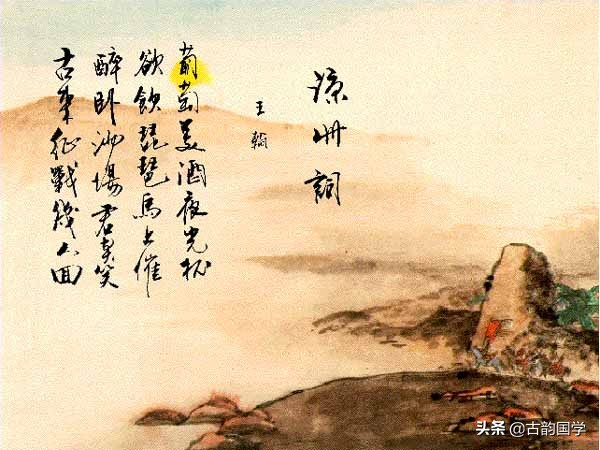 涼州詞
王翰
葡萄美酒夜光杯
欲飲琵琶馬上催
醉卧沙場君莫笑
古来征戰幾人回
头条 @古韵国学